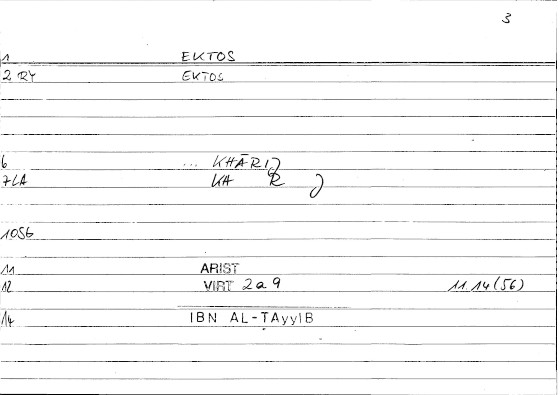 3
1 EKTOS
2 RY EKTOS
6 ... KHĀRIJ
7 LA KA R J
10 SG
11 ARIST
12 VIRT 2a9 11.14(56)
14 IBN AL-TAyyIB